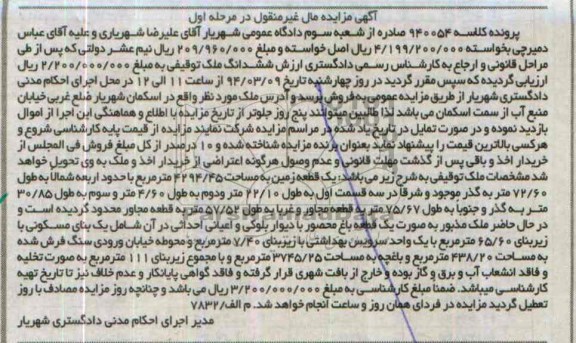 آگهی مزایده مال غیرمنقول در مرحله اول
پرونده کلاسه ۹۴۰۰۵۴ صادره از شعبه سوم دادگاه عمومی شهریار آقای علیرضا شهریاری و علیه آقای عباس
دمیرچی بخواسته ۴/۱۹۹/۲۰۰/۰۰۰ ریال اصل خواسته و مبلغ ۲۰۹/۹۶۰/۰۰۰ ریال نیم عشر دولتی که پس از طی
مراحل قانونی و ارجاع به کارشناس رسمی دادگستری ارزش ششدانگ ملک توقیفی به مبلغ ۲/۲۰۰/۰۰۰/۰۰۰ ریال
ارزیابی گردیده که سپس مقرر گردید در روز چهارشنبه تاریخ ۹۴/۰۳/۰۹ از ساعت ۱۱ الی ۱۲ در محل اجرای احکام مدنی
دادگستری شهریار از طریق مزایده عمومی به فروش برسد و آدرس ملک مورد نظر واقع در اسکمان شهریار ضلع غربی خیابان
منبع آب از سمت اسکمان می باشد لذا طالبین میتوانند پنج روز جلوتر از تاریخ مزایده با اطلاع و هماهنگی این اجرا از اموال
بازدید نموده و در صورت تمایل در تاریخ یاد شده در مراسم مزایده شرکت نمایند مزایده از قیمت پایه کارشناسی شروع و
هرکسی بالاترین قیمت را پیشنهاد نماید بعنوان برنده مزایده شناخته شده و ۱۰ درصدر از کل مبلغ فروش فی المجلس از
خریدار اخذ و باقی پس از گذشت مهلت قانونی و عدم وصول هرگونه اعتراضی از خریدار اخذ و ملک به وی تحویل خواهد
شد مشخصات ملک توقیفی به شرح زیر می باشد: یک قطعه زمین به مساحت ۴۲۹۴/۴۵ مترمربع با حدود اربعه شمالا به طول
۷۲/۶۰ متر به گذر موجود و شرقا در سه قسمت اول به طول ۲۲/۱۰ متر و دوم به طول ۴/۶۰ متر و سوم به طول ۳۰/۸۵
متر به گذر و جنوبا به طول ۷۵/۶۷ متر به قطعه مجاور و غربا به طول ۵۷/۵۲ متر به قطعه مجاور محدود گردیده است و
در حال حاضر ملک مذبور به صورت یک قطعه باغ محصور با دیوار بلوکی و اعیانی احداثی در آن شامل یک بنای مسکونی با
زیربنای ۶۵/۶۰ مترمربع با یک واحد سرویس بهداشتی با زیربنای ۷/۴۰ مترمربع و محوطه خیابان ورودی سنگ فرش شده
به مساحت ۴۳۸/۲۰ مترمربع و باغچه به مساحت ۳۷۴۵/۲۵ مترمربع و با مجموع زیربنای ۱۱۱ مترمربع به صورت تخلیه
و فاقد انشعاب آب و برق و گاز بوده و خارج از بافت شهری قرار گرفته و فاقد گواهی پایانکار و عدم خلاف نیز تا تاریخ تهیه
کارشناسی میباشد. ضمنا مبلغ کارشناسی به مبلغ ۳/۲۰۰/۰۰۰/۰۰۰ ریال می باشد و چنانچه روز مزایده مصادف با روز
تعطیل گردید مزایده در فردای همان روز و ساعت انجام خواهد شد. م الف/۷۸۳۲
مدیر اجرای احکام مدنی دادگستری شهریار